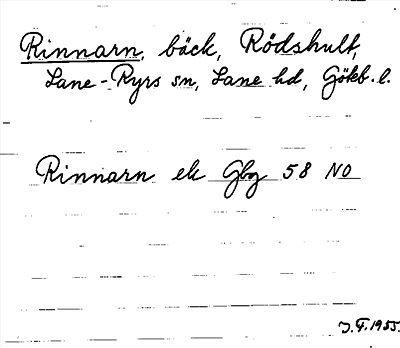 Rinnarn, bäck, Rödshult,
Lane-Ryrs sn, Lane hd, Gökb. l.
Rinnarn ek Gbg 58 NO
J. F. 1955.